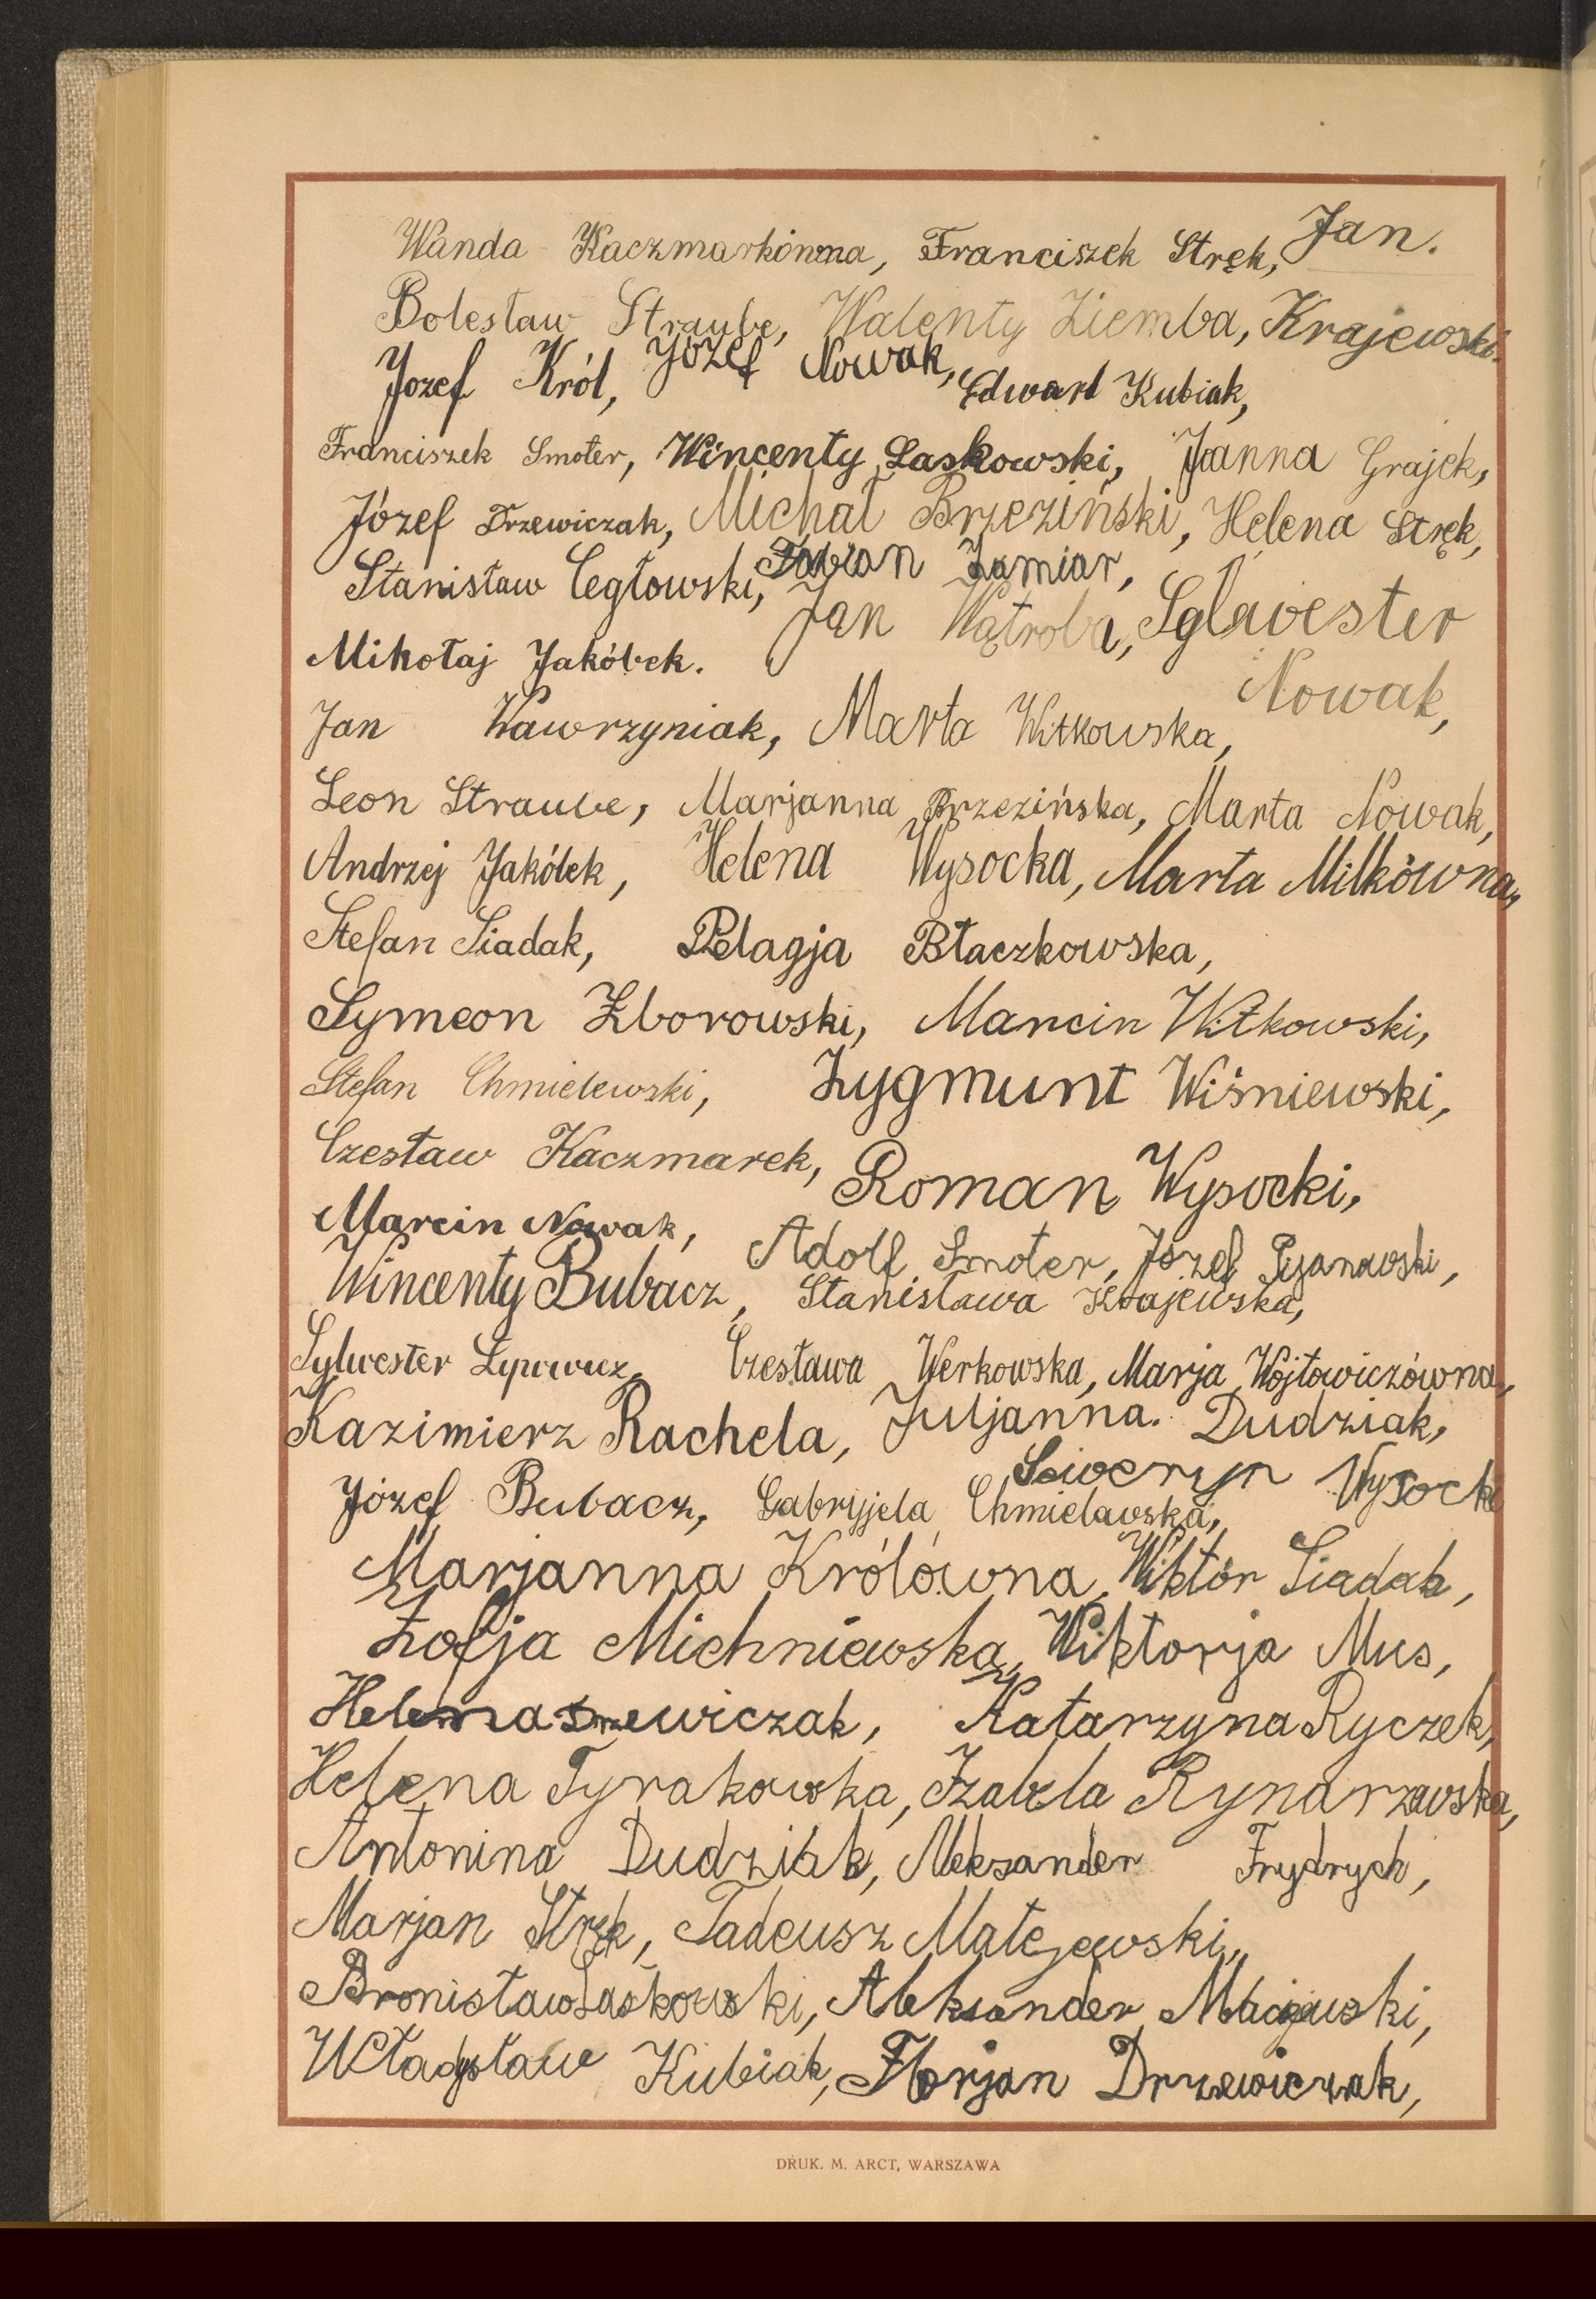 Wanda Kaczmarkówna, Franciszek Stręk, Jan.
Bolesław Straube, Walenty Ziemba, Krajewski.
Józef Król, Józef Nowak, Edward Kubiak,
Franciszek Smoter, Wincenty Laskowski, Joanna Grajek,
Józef Drzewiczak, Michał Brzeziński, Helena Stręk,
Stanisław Cegłowski, Fabian Zamiar,
Jan Wątroba, Sylwester
Mikołaj Jakóbek.
Nowak,
Jan Wawrzyniak, Marta Witkowska,
Leon Straube, Marjanna Brzezińska, Marta Nowak,
Andrzej Jakóbek, Helena Wysocka, Marta Milkówna,
Stefan Siadak, Pelagja Błaczkowska,
Symeon Zborowski, Marcin Witkowski,
Stefan Chmielewski, Zygmunt Wiśniewski,
Czesław Kaczmarek, Roman Wysocki,
Marcin Nowak, Adolf Smoter, Józef
Wincenty Bubacz, Stanisława Krajewska,
Sylwester Czesława Werkowska, Marja Wójtowiczówna,
Kazimierz Rachela, Juljanna. Dudziak,
Seweryn Wysocki
Józef Bubacz, Gabryjela Chmielawska,
Marjanna Królówna, Wiktór Siadak,
Zofja Michniewska, Wiktorja Mus,
Helena Drzewiczak, Katarzyna Ryczek,
Helena Tyrakowka, Izabela Rynarzawska,
Antonina Dudziak, Aleksander Frydrych,
Marjan Stręk, Tadeusz Matejewski,
Bronisław Laskowski, Aleksander Maciejewski,
Władysław Kubiak, Florjan Drzewiczak,
DRUK. M. ARCT, WARSZAWA